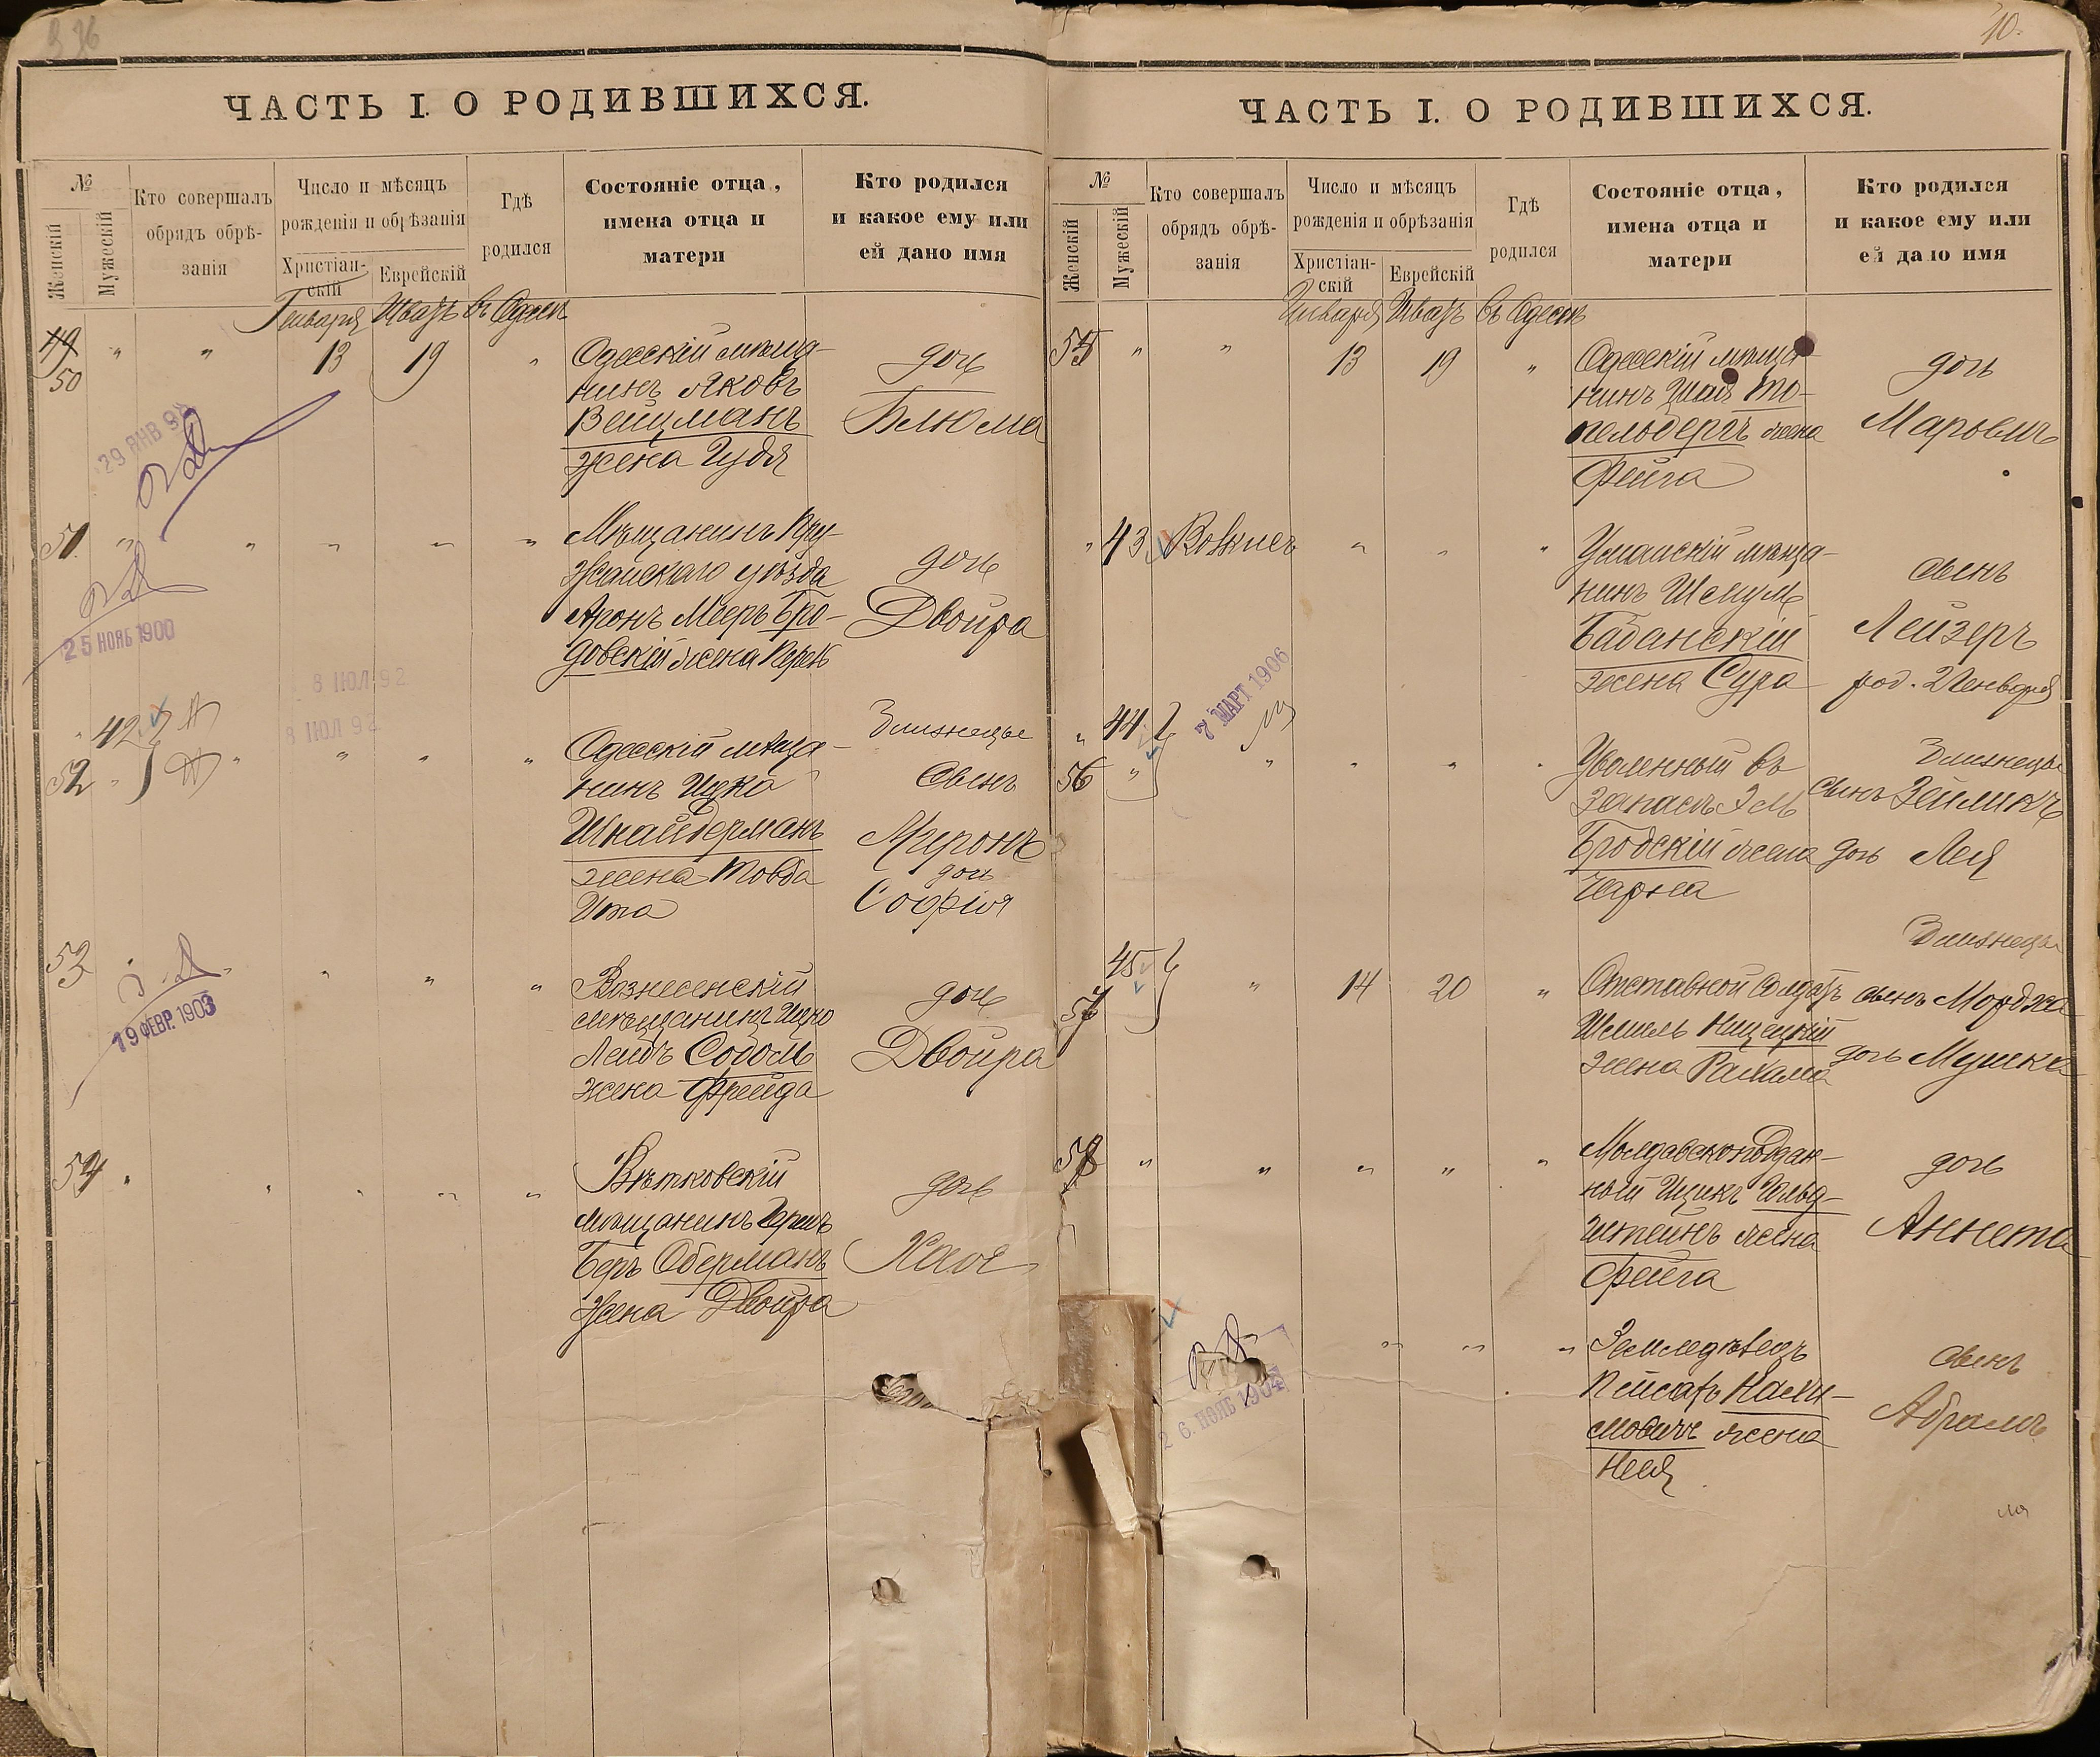 ЧАСТЬ I. О РОДИВШИХСЯ.
№
Женскій
Мужескій
Кто совершалъ
обрядъ обрѣ-
занія
Число и мѣсяцъ
рожденія и обрѣзанія
Христіан-
скій
Еврейскій
Гдѣ
родился
Состояніе отца,
имена отца и
матери
Кто родился
и какое ему или
ей дано имя
Января Шватъ въ Одессѣ
49
50
" " 13 19 "
Одесскій мѣща-
нинъ Яковъ
Вейцманъ
жена Гудя
дочь
Блюма
29 ЯНВ
51. " " " " "
Мѣщанинъ Пру-
жанскаго уѣзда
Аронъ Мееръ Бро-
довскій жена
дочь
Двойра
25 НОЯБ 1900
8 ІЮЛ 92
8 ІЮЛ 92
" 42
52 " " " " "
Одесскій мѣща-
нинъ Ицко
Шнайдерманъ
жена Товба
Ита
Близнецы
сынъ
Миронъ
дочь
Софія
53 " " "
Вознесенскій
мѣщанинъ Ицко
Лейбъ Соболь
жена Фрейда
дочь
Двойра
19 ФЕВР. 1903
54 " " " " "
Вѣтковскій
мѣщанинъ Гершъ
Беръ Оберманъ
Жена Двойра
дочь
Хая
10.
ЧАСТЬ I. О РОДИВШИХСЯ.
№
Женскій
Мужескій
Кто совершалъ
обрядъ обрѣ-
занія
Число и мѣсяцъ
рожденія и обрѣзанія
Христіан-
скій
Еврейскій
Гдѣ
родился
Состояніе отца,
имена отца и
матери
Кто родился
и какое ему или
ей дано имя
Января Шватъ въ Одессѣ
55 " " 13 19 "
Одесскій мѣща-
нинъ Шая То-
пельбергъ жена
Фейга
дочь
" 43 " " "
Уманскій мѣща-
нинъ Шмулъ
Бабанскій
жена Сура
сынъ
Лейзеръ
род. 2 Января
7 МАРТ 1906
" 44
56 " " " " "
Уволенный въ
запасъ Эль
Бродскій жена
Чарна
Близнецы
сынъ Зейликъ
дочь Лея
45
57 " 14 20 "
Отставной Солдатъ
Шмиль
жена Рахиль
Близнецы
сынъ Мордка
дочь Мушка
58 " " " " "
Молдавскоподдан-
ный Ицикъ Гольд-
штейнъ жена
Фейга
дочь
Аннета
" " "
Земледѣлецъ
Пейсахъ Нахи-
мовичъ жена
сынъ
Абрамъ
26 НОЯБ 1904